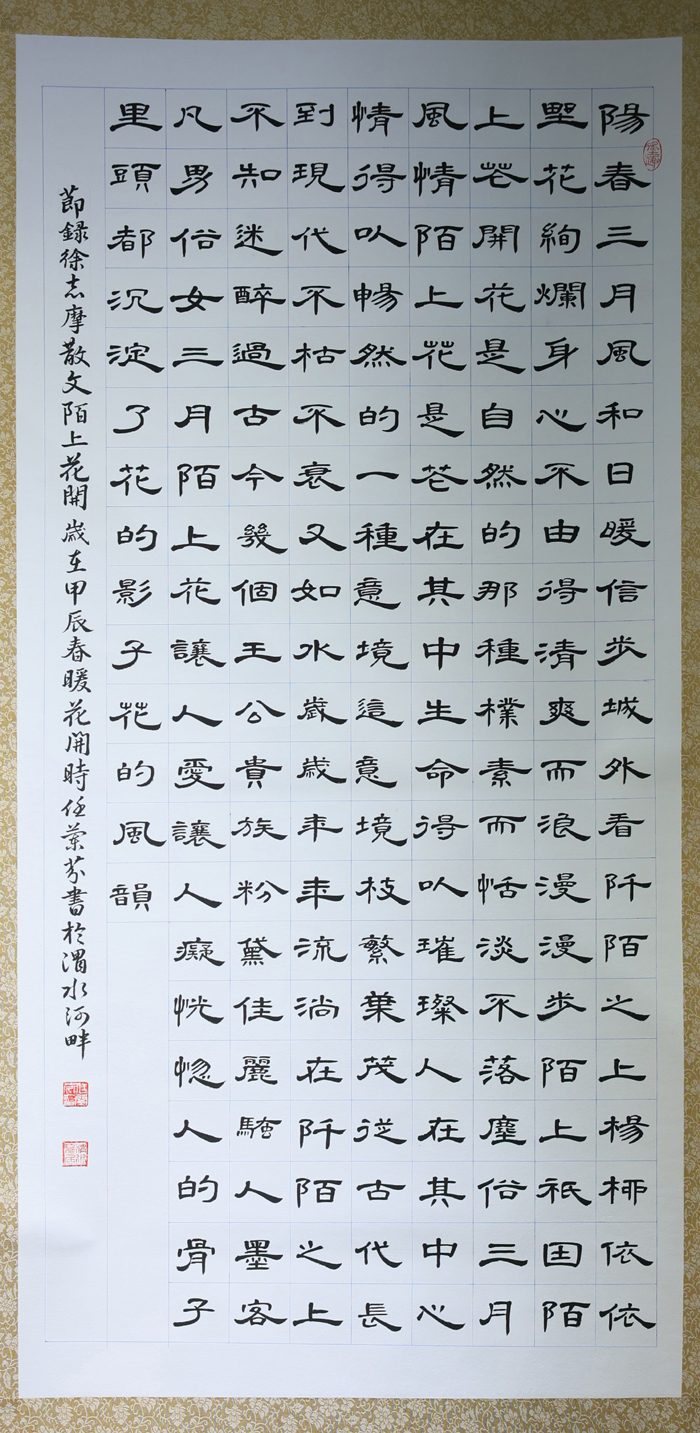 陽春三月風和日暖信步城外看阡陌之上楊柳依依
野花絢爛身心不由得清爽而浪漫漫步陌上祇因陌
上芲開花是自然的那種樸素而恬淡不落塵俗三月
風情陌上花是芲在其中生命得以璀璨人在其中心
情得以暢然的一種意境這意境枝繁葉茂從古代長
到現代不枯不衰又如水歲歲年年流淌在阡陌之上
不知迷醉過古今幾個王公貴族粉黛佳麗騷人墨客
凡男俗女三月陌上花讓人愛讓人癡恍惚人的骨子
里頭都沉淀了花的影子花的風韻
節錄徐志摩散文陌上花開歲在甲辰春暖花開時任蘭芬書於渭水河畔